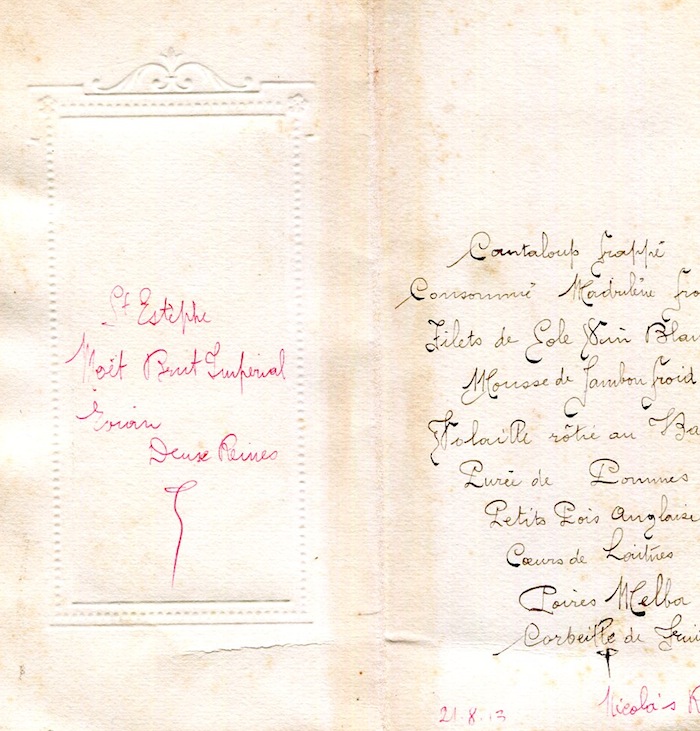 St Estèphe
Moët Brut Impérial
Evian
Deux Reines
Cantaloup frappé
Consommé Madrilène fro
Filets de Sole Vin Blan
Mousse de Jambon froid
Volaille rôtie au Ba
Purée de Pommes
Petits Pois Anglaise
Cœurs de Laitues
Poires Melba
Corbeille de Frui
21.8.13
Nicola's R